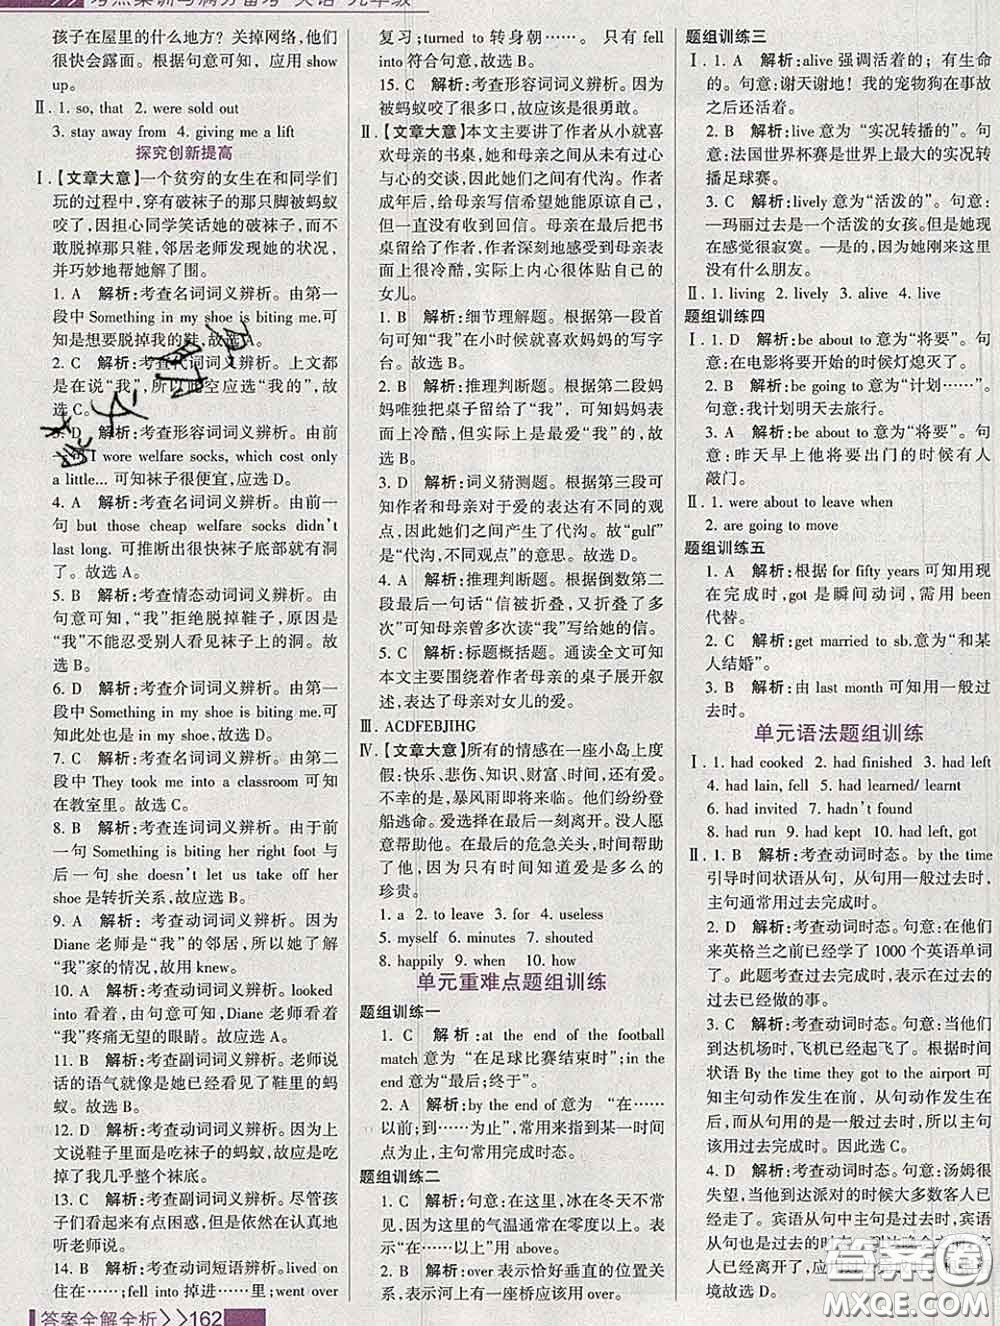 考点集训与满分备考 英语 九年级
孩子在屋里的什么地方? 关掉网络,他们
很快会露面。根据句意可知,应用 show
up。
Ⅱ. 1. so, that 2. were sold out
3. stay away from 4. giving me a lift
探究创新提高
Ⅰ.【文章大意】一个贫穷的女生在和同学们
玩的过程中,穿有破袜子的那只脚被蚂蚁
咬了,因担心同学笑话她的破袜子,而不
敢脱掉那只鞋,邻居老师发现她的状况,
并巧妙地帮她解了围。
1. A 解析:考查名词词义辨析。由第一
段中 Something in my shoe is biting me.可
知是想要脱掉我的鞋,故选 A。
2. C 解析:考查代词词义辨析。上文都
是在说“我”,所以此空应选“我的”,故
选 C。
3. D 解析:考查形容词词义辨析。由前
一句 I wore welfare socks, which cost only
a little... 可知袜子很便宜,应选 D。
4. A 解析:考查名词词义辨析。由前一
句 but those cheap welfare socks didn't
last long. 可推断出很快袜子底部就有了
洞。故选 A。
5. B 解析:考查情态动词词义辨析。由
句意可知,“我”拒绝脱掉鞋子,原因是
“我”不能忍受别人看见袜子上的洞。故
选 B。
6. D 解析:考查介词词义辨析。由第一
段中 Something in my shoe is biting me.可
知此处也是 in my shoe,故选 D。
7. C 解析:考查动词词义辨析。由第二
段中 They took me into a classroom 可知
在教室里。故选 C。
8. B 解析:考查连词词义辨析。由于前
一句 Something is biting her right foot 与
后一句 she doesn't let us take off her
shoe 是转折关系,故应选 B。
9. A 解析:考查动词词义辨析。因为
Diane 老师是“我”的邻居,所以她了解
“我”家的情况,故用 knew。
10. A 解析:考查动词词义辨析。looked
into 看着,由句意可知,Diane 老师看着
“我”疼痛无望的眼睛。故选 A。
11. B 解析:考查副词词义辨析。老师说
话的语气就像是她已经看见了鞋里的蚂
蚁。故选 B。
12. D 解析:考查动词词义辨析。因为上
文说鞋子里面是吃袜子的蚂蚁,故应是吃
掉了我几乎整个袜底。
13. C 解析:考查副词词义辨析。尽管孩
子们看起来有点困惑,但是依然在认真地
听老师说。
14. B 解析:考查动词短语辨析。lived on
住在……;fell into 掉进……;went over
复习;turned to 转身朝……。只有 fell
into符合句意,故选 B。
15. C 解析:考查形容词词义辨析。因为
被蚂蚁咬了很多口,故应该是很勇敢。
Ⅱ.【文章大意】本文主要讲了作者从小就喜
欢母亲的书桌,她和母亲之间从未有过心
与心的交谈,因此她们之间有代沟。作者
成年后,给母亲写信希望她能原谅自己,
但一直没有收到回信。母亲在最后把书
桌留给了作者,作者深刻地感受到母亲表
面上的冷酷,实际上内心的一直惦记着自己的
女儿。
1. B 解析:细节理解题。根据第一段首
句可知“我”在小时候就喜欢妈妈的写字
台。故选 B。
2. C 解析:推理判断题。根据第二段妈
妈唯独把桌子留给了“我”,可知妈妈表面
上是冷酷的,但实际上是最爱“我”的,
故选 C。
3. D 解析:词义猜测题。根据第三段可
知作者和母亲对于爱的表达有不同的观
点,因此她们之间产生了代沟。故“gulf”
是“代沟,不同观点”的意思。故选 D。
4. A 解析:推理判断题。根据倒数第二
段最后一句话“信被折叠,又打开了多
次”可知母亲曾多次读“我”写给她的信。
5. C 解析:标题概括题。通读全文可知
本文主要围绕着作者母亲的桌子展开叙
述,表达了母亲对女儿的爱。
Ⅲ. ACDFEBJIHG
Ⅳ.【文章大意】所有的情感在一座小岛上度
假:快乐、悲伤、知识、财富、时间,还有爱。
不幸的是,暴风雨即将来临。他们纷纷登
船逃命。爱选择在最后一刻离开。没人愿
意帮助他。在最后的危急关头,时间帮助
了他,因为只有时间知道爱是多么的
珍贵。
1. a 2. to leave 3. for 4. useless
5. myself 6. minutes 7. shouted
8. happily 9. when 10. how
单元重难点题组训练
题组训练一
1. C 解析:at the end of the football
match 意为“在足球比赛结束时”;in the
end 意为“最后;终于”。
2. A 解析:by the end of 意为 “在……
以前;到……为止”,常用于将来时或过去
完成时,主句常用完成时态。
题组训练二
1. C 解析:句意:在这里,冰在冬天不常
见,因为这里的气温通常在零度以上。表
示“在……以上”用 above。
2. C 解析:over 表示恰好垂直的上方,表
示河上有一座桥应该用介词 over。
题组训练三
Ⅰ. 1. A 解析:alive 强调活着的;有生命
的。句意:谢天谢地! 我的宠物狗在事故
之后还活着。
2. B 解析:live 意为“实况转播的”。句
意:法国世界杯赛是激动人心的实况转
播足球赛。
3. C 解析:lively 意为“活泼的”。句意:
—玛丽过去是一个活泼的女孩,但她现
在感觉很寂寞。—是的,因为她刚来这里
没有什么朋友。
Ⅱ. 1. living 2. lively 3. alive 4. live
题组训练四
Ⅰ. 1. D 解析:be about to 意为“将要”。句
意:在电影将要开始的时候灯熄灭了。
2. B 解析:be going to 意为“计划……”。
句意:我计划明天去旅行。
3. A 解析:be about to 意为“将要”。句
意:昨天早上他将要出门的时候有人
敲门。
Ⅱ. 1. were about to leave when
2. are going to move
题组训练五
1. A 解析:根据 for fifty years 可知用现
在完成时,got 是瞬间动词,需用 been
代替。
2. C 解析:get married to sb.意为“和某
人结婚”。
3. B 解析:由 last month 可知用一般过
去时。
单元语法题组训练
Ⅰ. 1. had cooked 2. had finished 3. had left
4. had lain, fell 5. had learned/ learnt
6. had invited 7. hadn't found
8. had run 9. had kept 10. had left, got
Ⅱ. 1. B 解析:考查动词时态。by the time
引导时间状语从句,从句用一般过去时,
主句通常用过去完成时。
2. D 解析:考查动词时态。句意:在他们
来英格兰之前已经学了 1000 个英语单词。
此题考查过去完成时,表示在过去的过去
已经做的事。
3. C 解析:考查动词时态。句意:当他们
到达机场时,飞机已经起飞了。根据时间
状语 By the time they got to the airport 可
知主句动作发生在前,从句动作发生在
后,而从句用的是一般过去时,所以主句
该用过去完成时。因此选 C。
4. D 解析:考查动词时态。句意:汤姆很
失望,当他到达派对的时候大多数客人已
经走了。宾语从句中主句是过去时,宾语
从
境故选 D。
答案全解全析>>162
答案圈
MXQE.COM